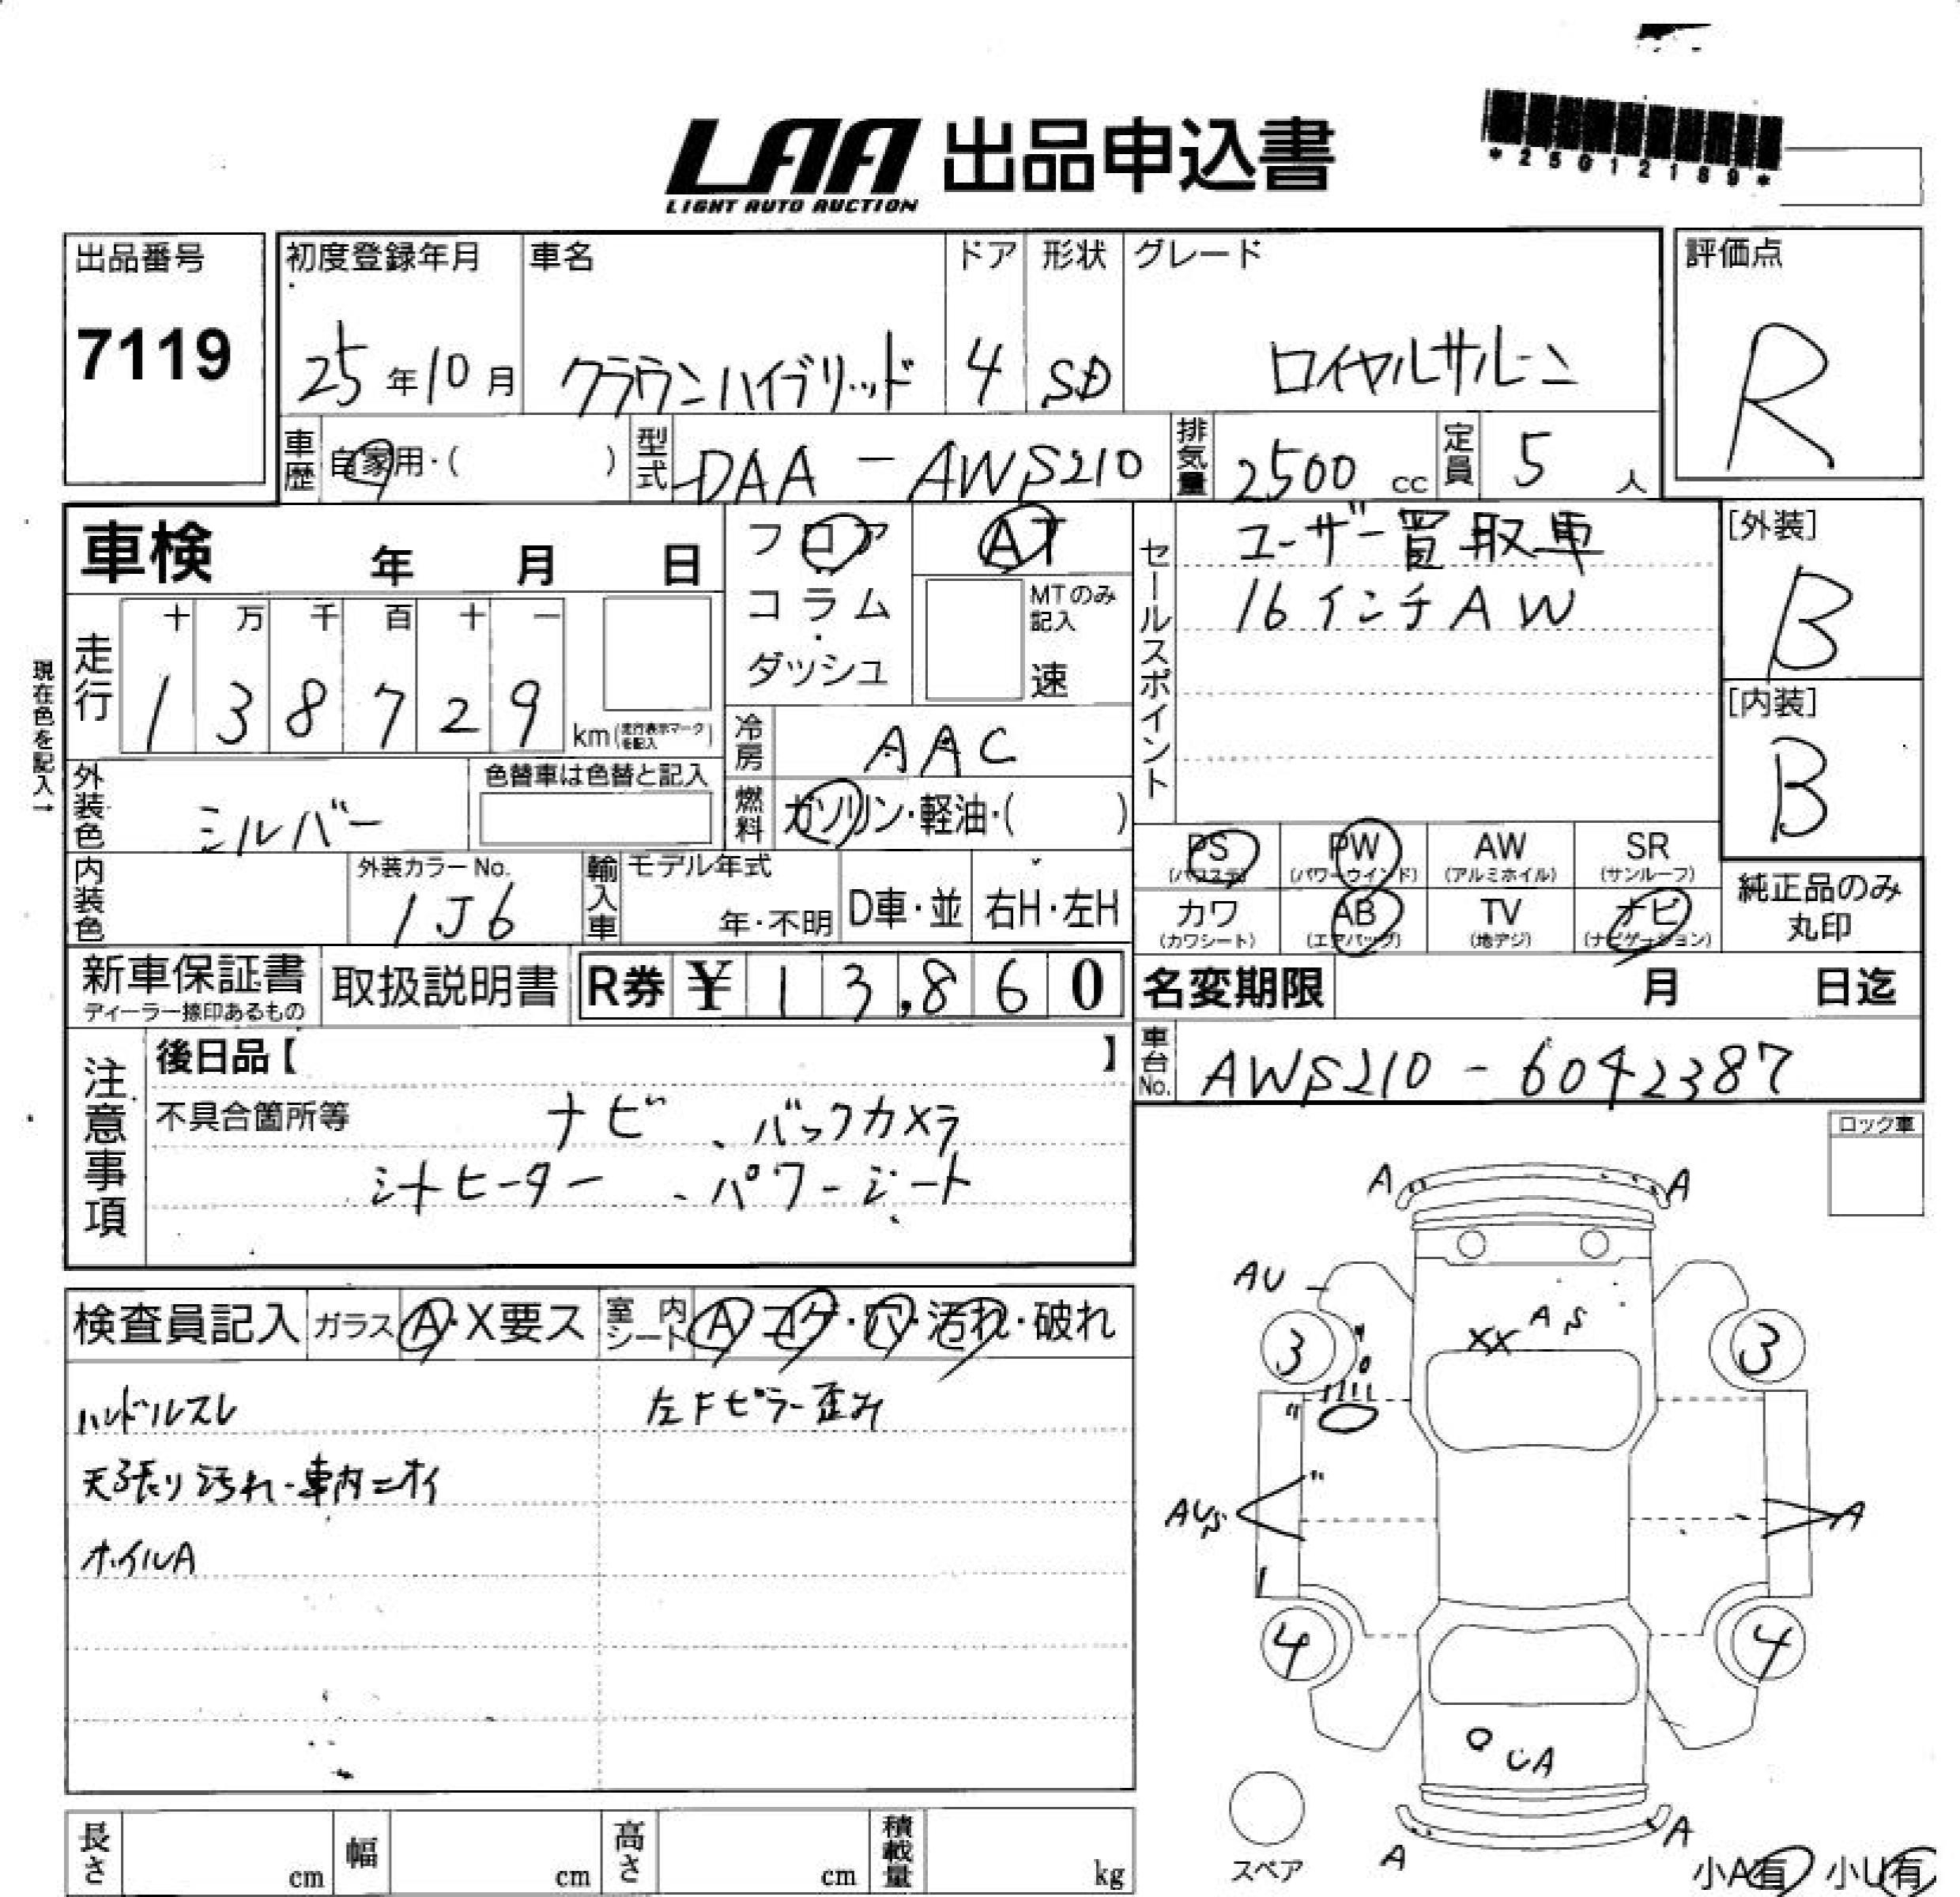 LAA 出品申込書
LIGHT AUTO AUCTION
*25012189*
出品番号
7119
初度登録年月
25年10月
車名
クラウンハイブリッド
ドア
4
形状
SD
グレード
ロイヤルサルーン
評価点
R
車歴
自家用・( )
型式
DAA-AWS210
排気量
2500 cc
定員
5 人
車検 年 月 日
フロア
コラム
・
ダッシュ
AT
MTのみ
記入
速
セールスポイント
ユーザー買取車
16インチAW
[外装]
B
[内装]
B
現在色を記入→
走行
十 万 千 百 十 一
1 3 8 7 2 9
km(走行表示マークを記入)
冷房
AAC
燃料
ガソリン・軽油・( )
外装色
シルバー
色替車は色替と記入
内装色
外装カラーNo.
1J6
輸入車
モデル年式
年・不明
D車・並
右H・左H
PS
(パワステ)
PW
(パワーウインド)
AW
(アルミホイル)
SR
(サンルーフ)
カワ
(カワシート)
AB
(エアバッグ)
TV
(地デジ)
ナビ
(ナビゲーション)
純正品のみ
丸印
新車保証書
ディーラー捺印あるもの
取扱説明書
R券 ¥ 13,860
名変期限 月 日迄
車台No.
AWS210-6042387
注意事項
後日品【 】
不具合箇所等
ナビ、バックカメラ
シートヒーター、パワーシート
ロック車
検査員記入
ガラス A・X要ス
室内シート A コゲ・穴・汚れ・破れ
ハンドルスレ
左Fピラー歪み
天張り汚れ・車内ニオイ
ホイルA
A A
AU
XX AS
3 3
AUS A
4 4
UA
A A
スペア
小A有 小U有
長さ cm
幅 cm
高さ cm
積載量 kg